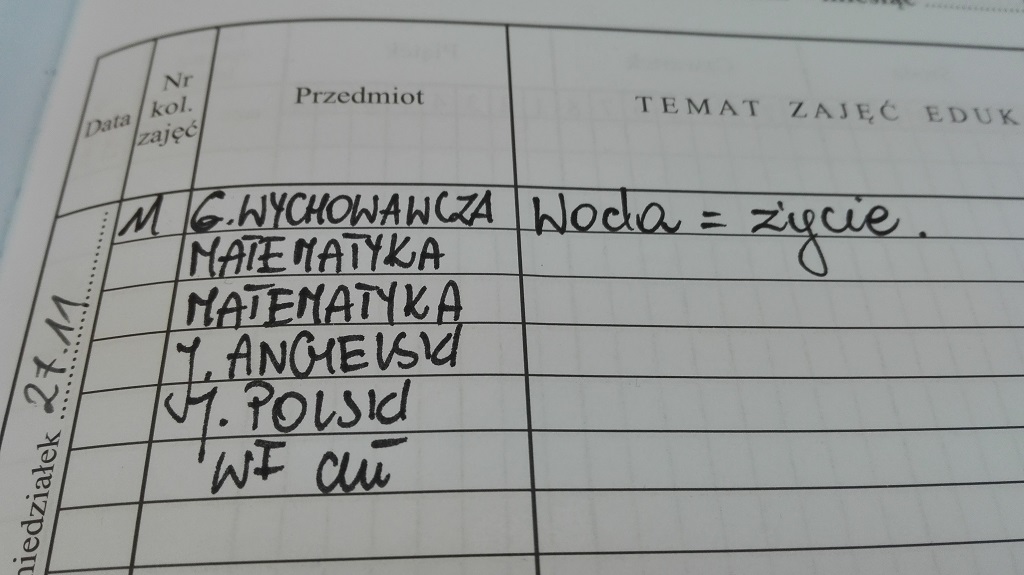 Data
Nr kol. zajęć
Przedmiot
TEMAT ZAJĘĆ EDUK
niedziałek 27.11
11 G. WYCHOWAWCZA Woda = życie.
MATEMATYKA
MATEMATYKA
J. ANGIELSKI
J. POLSKI
WF